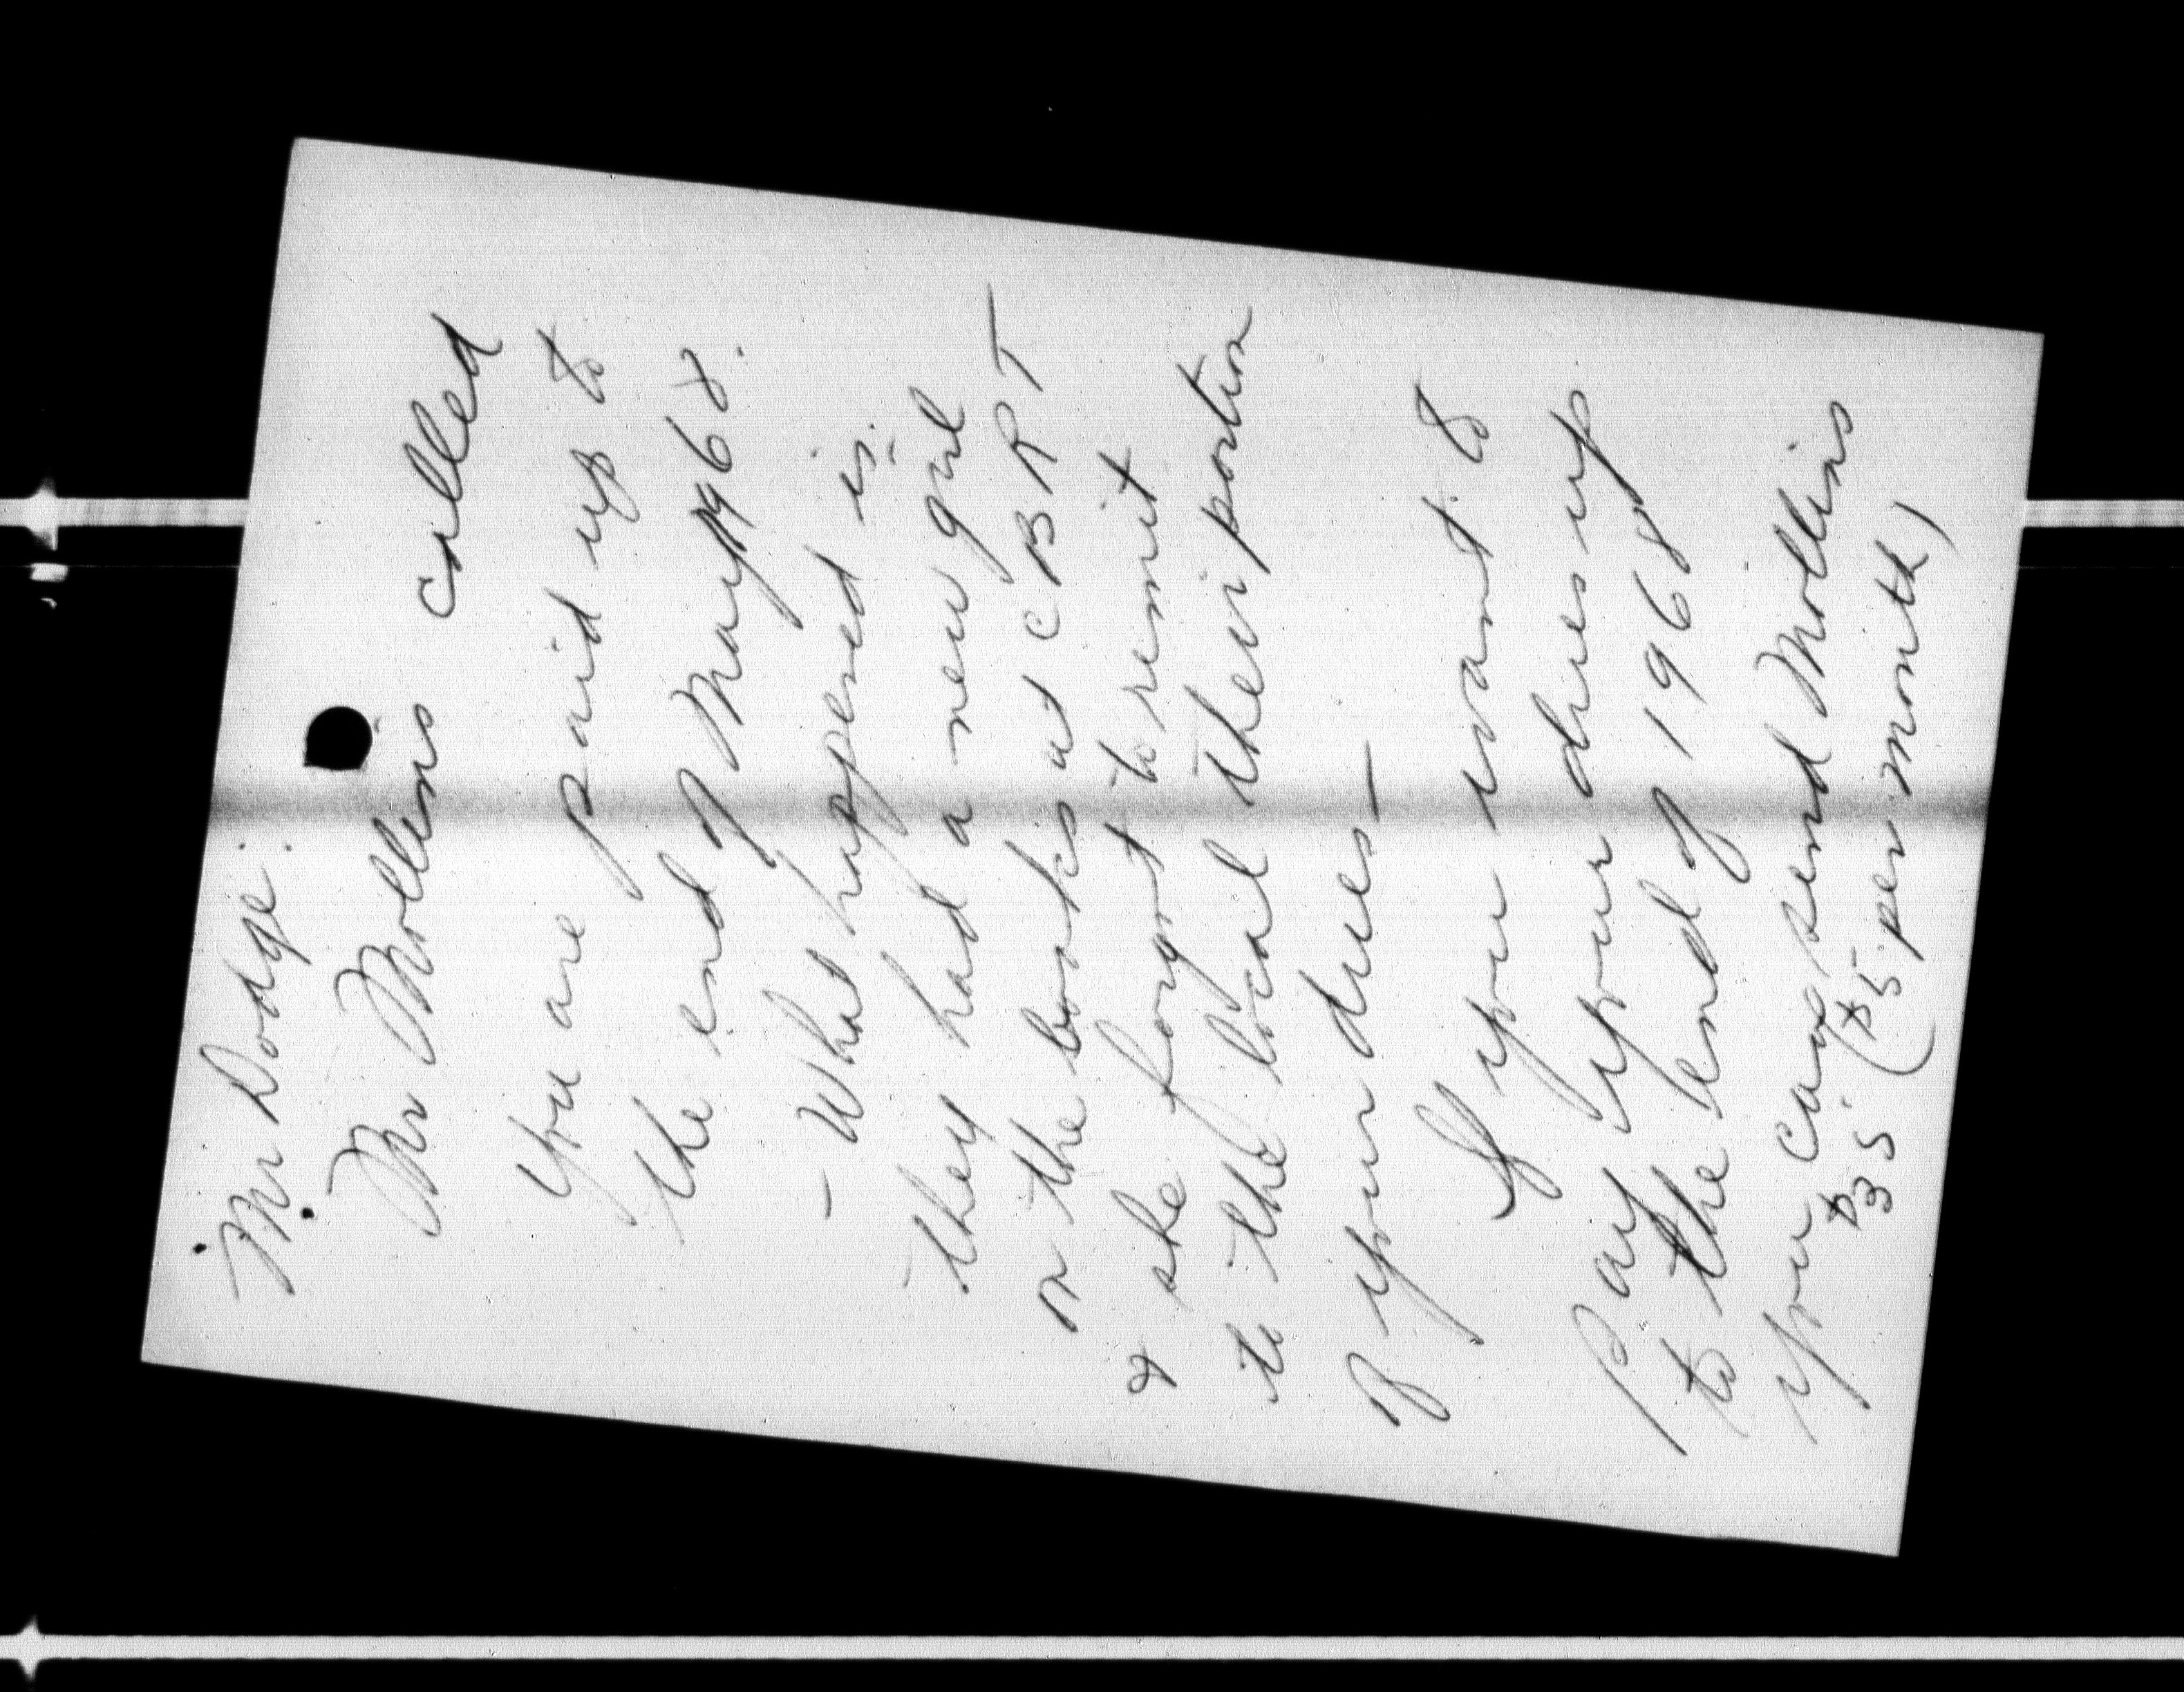 Mr Dodge:
Mr Mollins called
you are paid up to
the end of May 1968.
- What happened is:
they had a new girl
on the books at CBRT
& she forgot to remit
to the local their portion
of your dues -
If you want to
Pay your dues up
to the end of 1968
you can send Mollins
$35. ($5 per month)